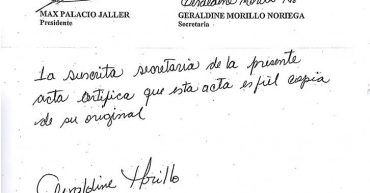 Geraldine Morillo No
MAX PALACIO JALLER GERALDINE MORILLO NORIEGA
Presidente Secretaria
La suscrita secretaria de la presente
acta certifica que esta acta es fiel copia
de su original
Geraldine Morillo